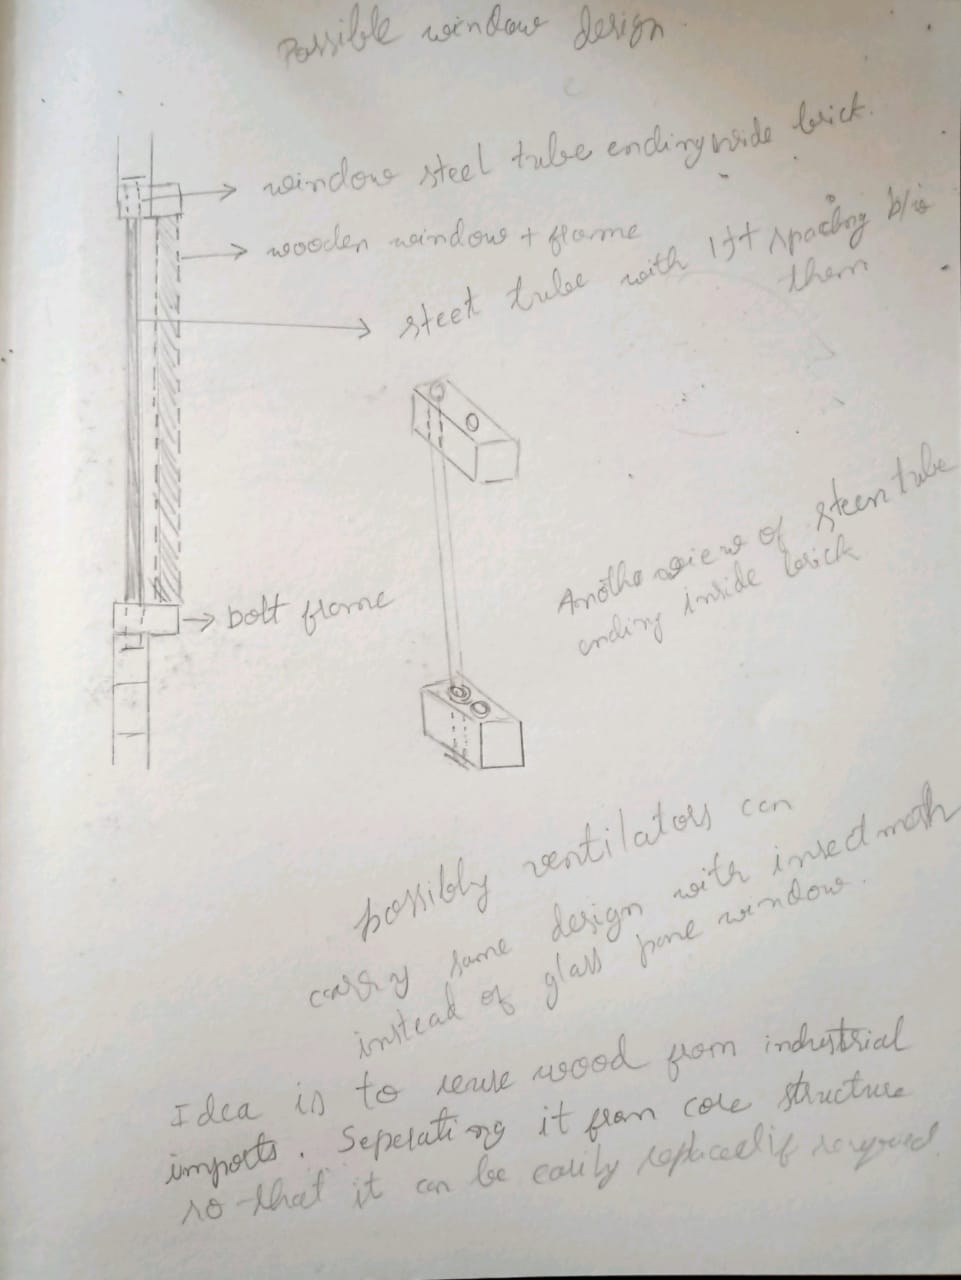 Possible window design
window steel tube ending inside brick.
wooden window + frame
steel tube with 1ft spacing b/w
them
bolt frame
Another view of steen tube
ending inside brick
possibly ventilators can
carry same design with insect mesh
instead of glass pane window.
Idea is to reuse wood from industrial
imports. Seperating it from core structure
so that it can be easily replaced if required